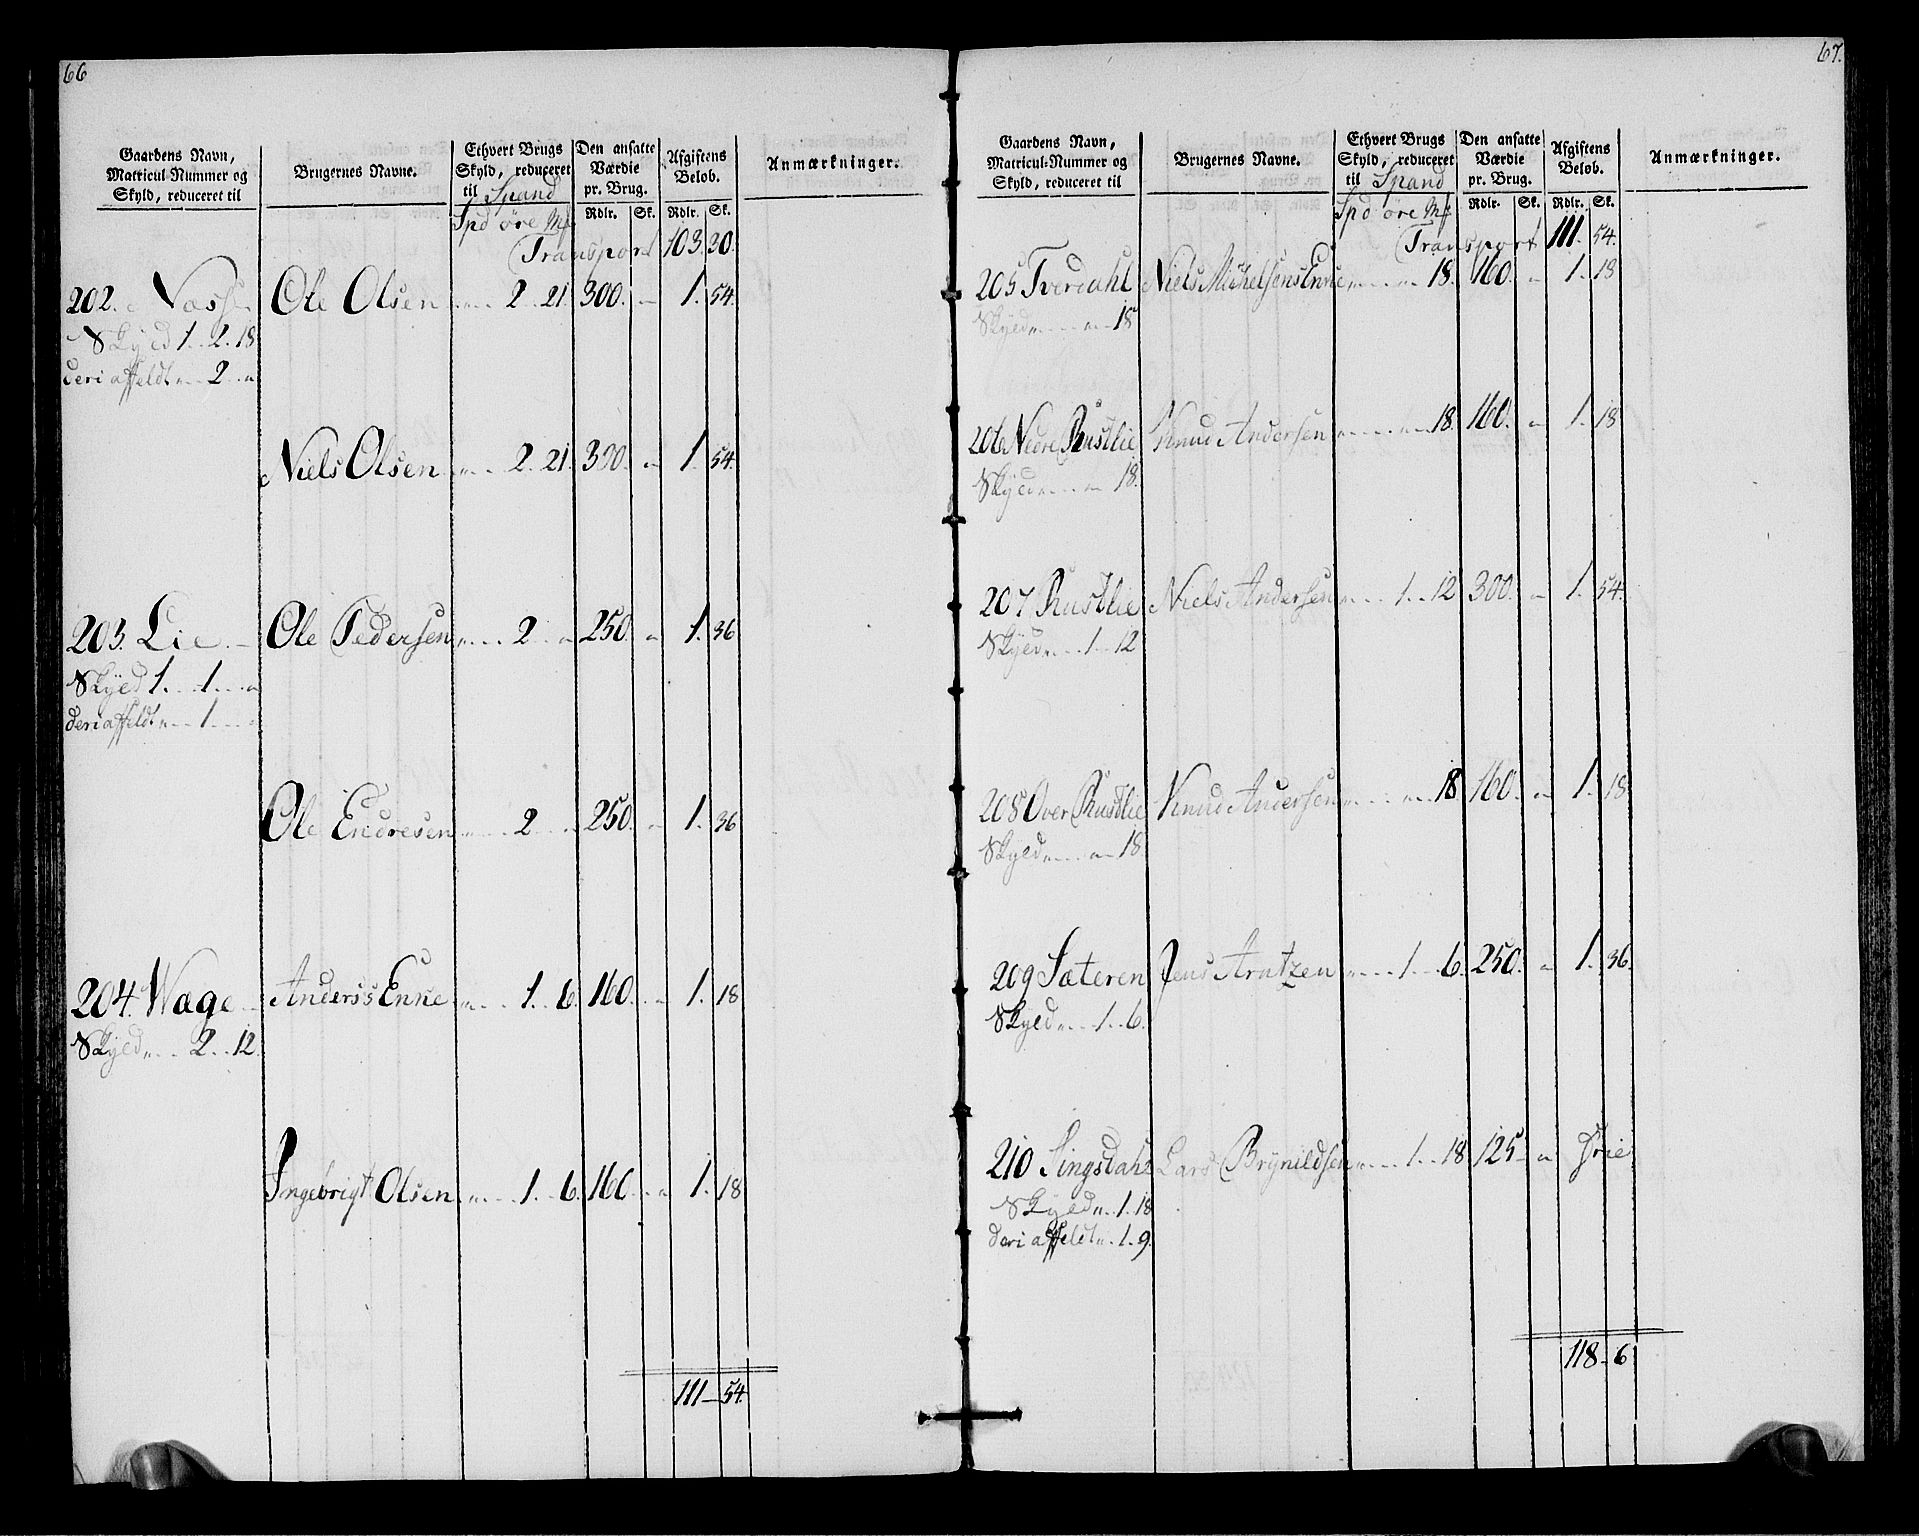 66
Gaardens Navn, Matricul-Nummer og Skyld, reduceret til
Brugernes Navne.
Ethvert Brugs Skyld, reduceret til Spand
Spd öre Mk
Den ansatte Værdie pr. Brug.
Rdlr. Sk.
Afgiftens Beløb.
Rdlr. Sk.
Anmærkninger.
Transport 103. 20.
202. Næss Ole Olsen „ 2. 21. 300. „ 1. 54.
Skyld 1. 2. 18
deri affeldt „ 2. „
Niels Olsen „ 2. 21. 300. „ 1. 54.
203. Lie Ole Pedersen „ 2 „ 250. „ 1. 36
Skyld 1. 1. „
deri affeldt „ 1.
Ole Endresen „ 2 „ 250. „ 1. 36
204. Wæge Anderss Enke „ 1. 6. 160. „ 1. 18
Skyld „ 2. 12.
Ingebrigt Olsen „ 1. 6. 160. „ 1. 18
111 – 54.
67.
Gaardens Navn, Matricul-Nummer og Skyld, reduceret til
Brugernes Navne.
Ethvert Brugs Skyld, reduceret til Spand
Spd öre Mk
Den ansatte Værdie pr. Brug.
Rdlr. Sk.
Afgiftens Beløb.
Rdlr. Sk.
Anmærkninger.
Transport 111. 54.
205 Tverdahl Niels Michelsens Enke „ „ 18. 160. „ 1. 18
Skyld „ „ 18
206 Nedre Rustlie Knud Andersen „ „ 18. 160. „ 1. 18
Skyld „ „ 18.
207 Rustlie Niels Andersen „ 1. 12 300. „ 1. 54.
Skyld „ 1. 12
208 Over Rustlie Knud Andersen „ „ 18 160. „ 1. 18
Skyld „ „ 18.
209 Sæteren Jens Arntzen „ 1. 6. 250. „ 1. 36.
Skyld „ 1. 6.
210 Singsdahl Lars Brynildsen „ 1. 18 125 „ Frie
Skyld „ 1. 18
deri affeldt „ 1. 9.
118 – 6